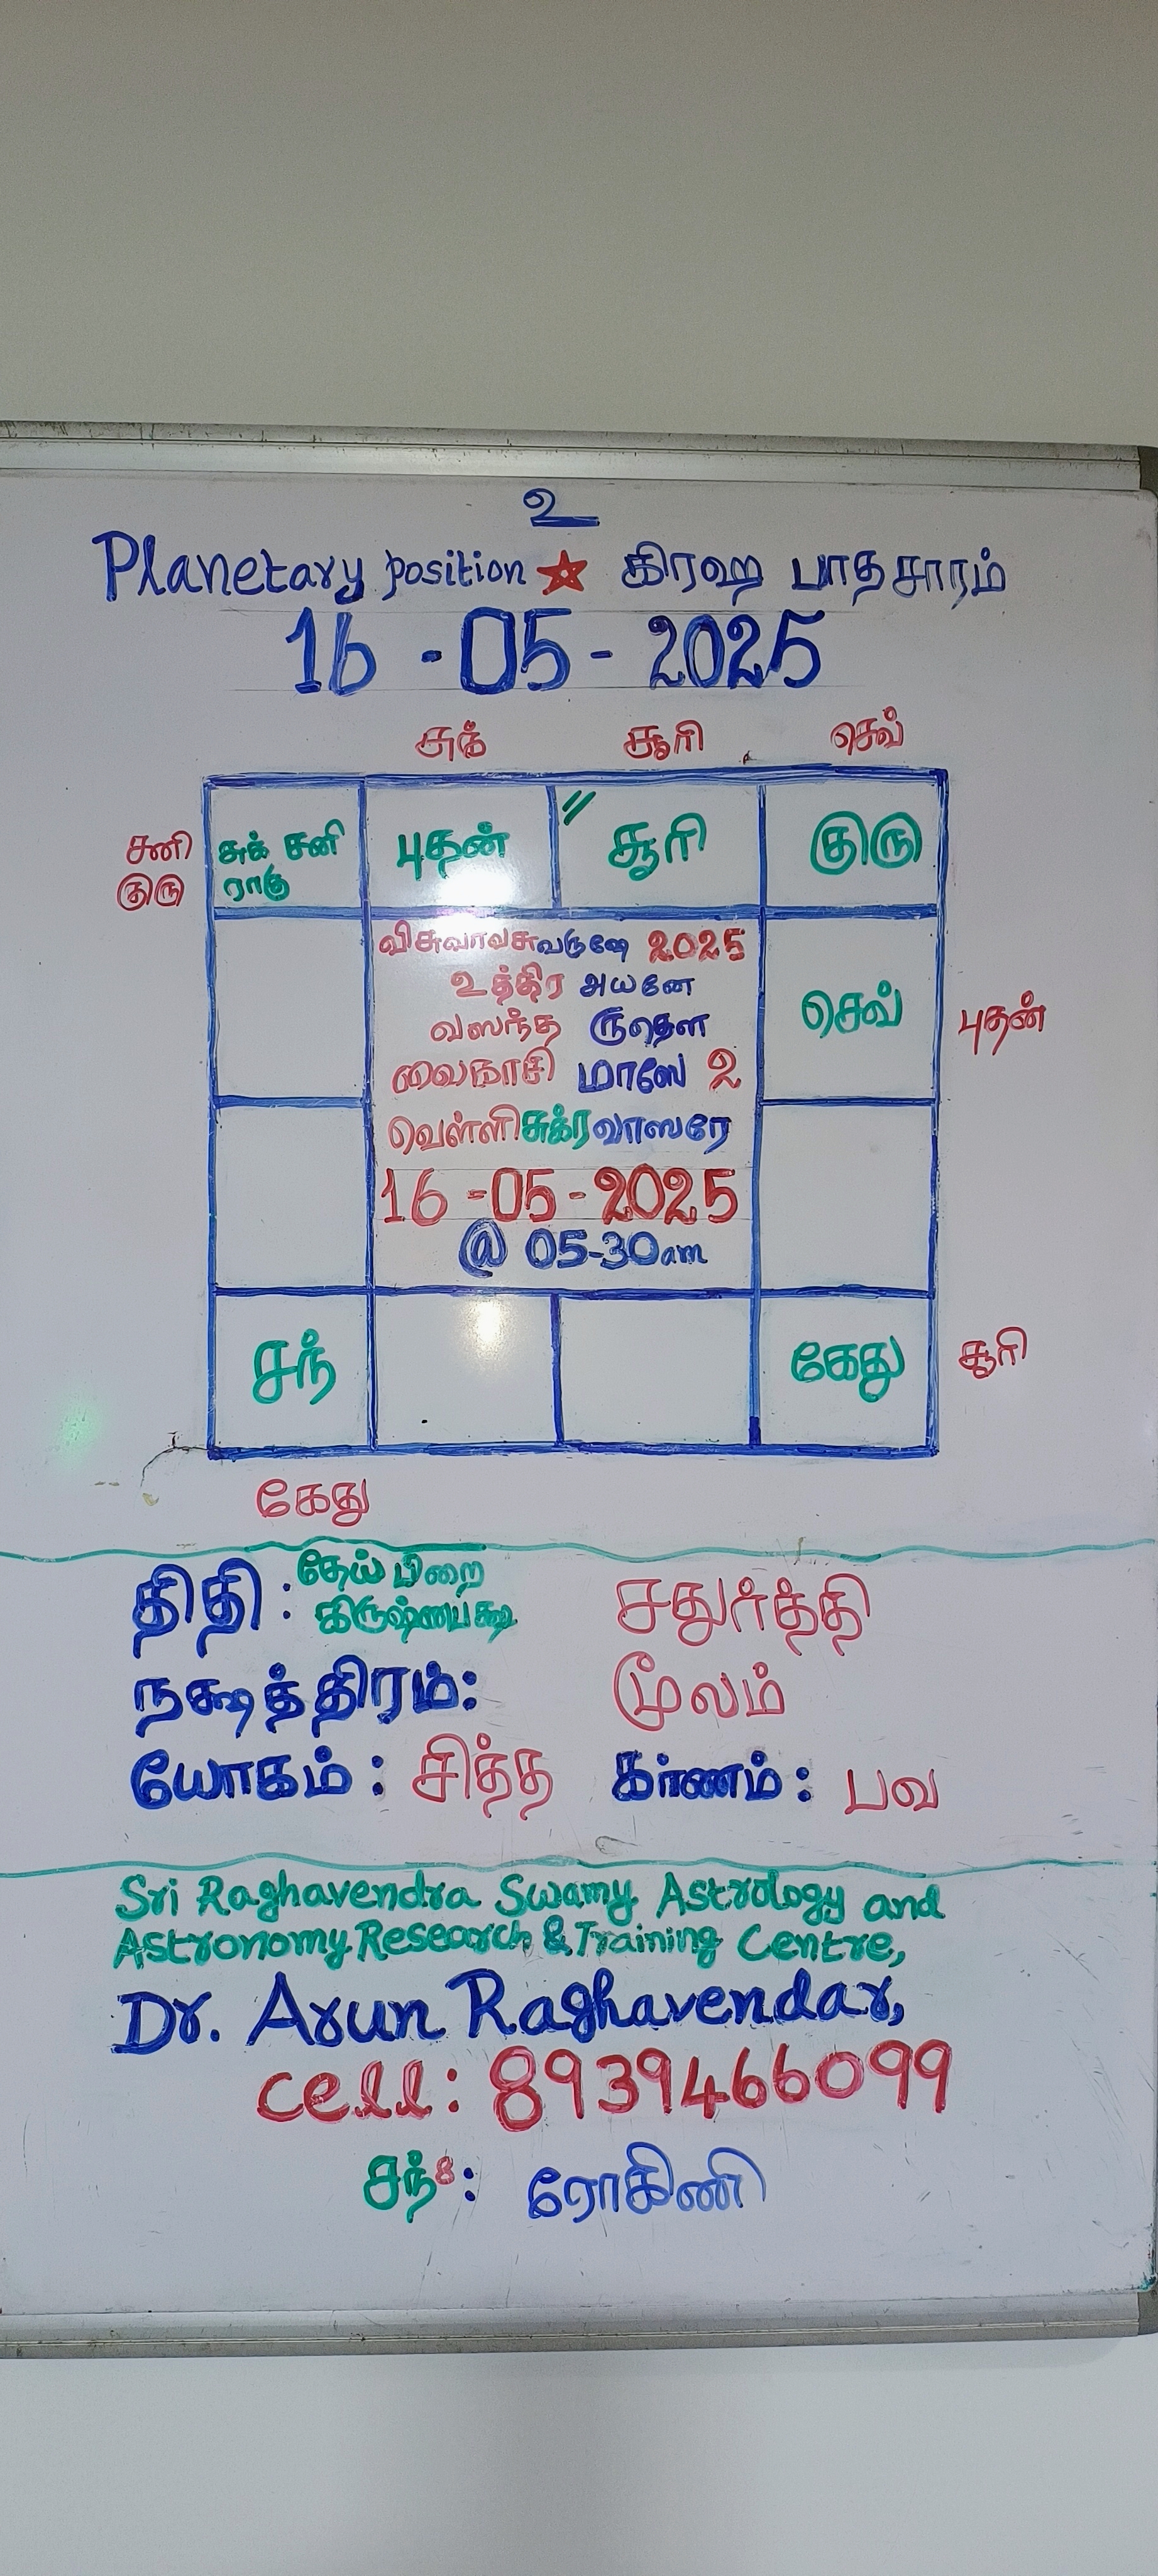 உ
Planetary position ★ கிரஹ பாதசாரம்
16 - 05 - 2025
சுக் சூரி செவ்
சனி குரு
சுக் சனி ராகு
புதன்
// சூரி
குரு
விசுவாவசுவருஷே 2025
உத்திர அயனே
வஸந்த ருதௌ
வைகாசி மாஸே 2
வெள்ளி சுக்ரவாஸரே
16 -05 - 2025
@ 05-30am
செவ்
புதன்
சந்
கேது
சூரி
கேது
திதி : தேய்பிறை கிருஷ்ணபக்ஷ சதுர்த்தி
நக்ஷத்திரம்: மூலம்
யோகம் : சித்த கரணம் : பவ
Sri Raghavendra Swamy Astrology and
Astronomy Research & Training Centre,
Dr. Arun Raghavendar,
cell: 8939466099
சந்8 : ரோகிணி